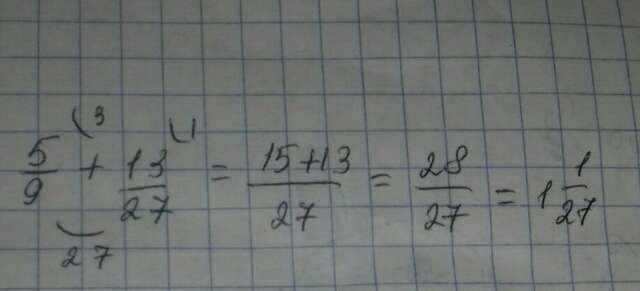 5/9 (3 + 13/27 (1 = 15+13/27 = 28/27 = 1 1/27
27